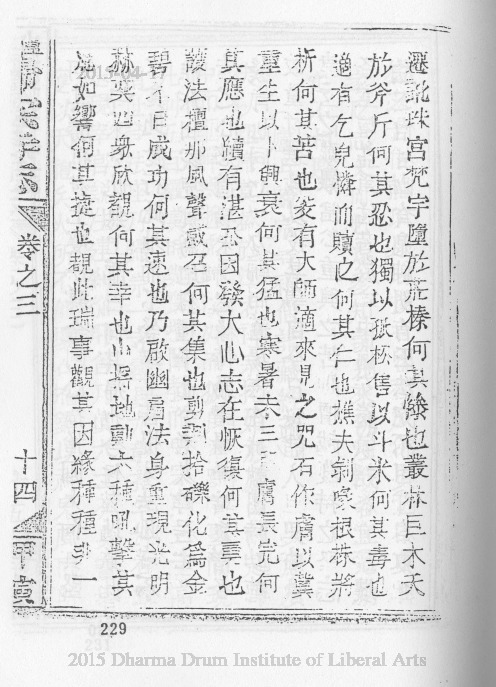 遷訛珠宮梵宇墮於荒榛何其慘也叢林巨木夭
於斧斤何其忍也獨以孤柸售以斗米何其毒也
適有乞兒憐而贖之何其仁也樵夫剝啄根株將
析何其苦也爰有大師適來見之咒石作膚以冀
重生以卜興衰何其猛也寒暑未三膚長完何
其應也續有湛公因發大心志在恢復何其勇也
護法檀那風聲感召何其集也剪荆拾礫化為金
碧不日成功何其速也乃啟幽扃法身重現光明
赫奕四眾欣觀何其幸也山搖地動六種吼擊其
應如響何其捷也覩此瑞事觀其因緣種種非一
卷之三
十四
甲
229
2015 Dharma Drum Institute of Liberal Arts